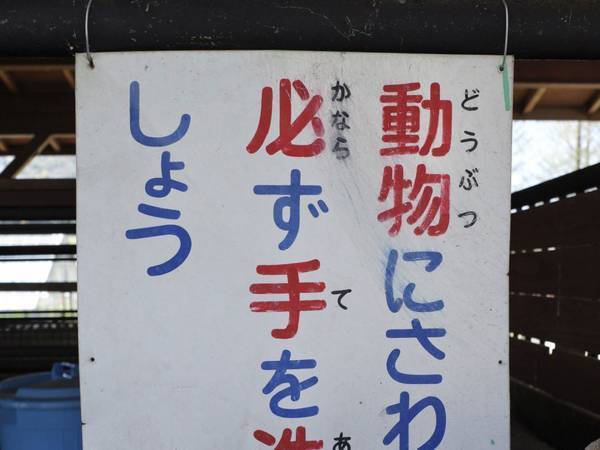 動物にさわ
どうぶつ
必ず手を洗
かなら
て
あ
しょう